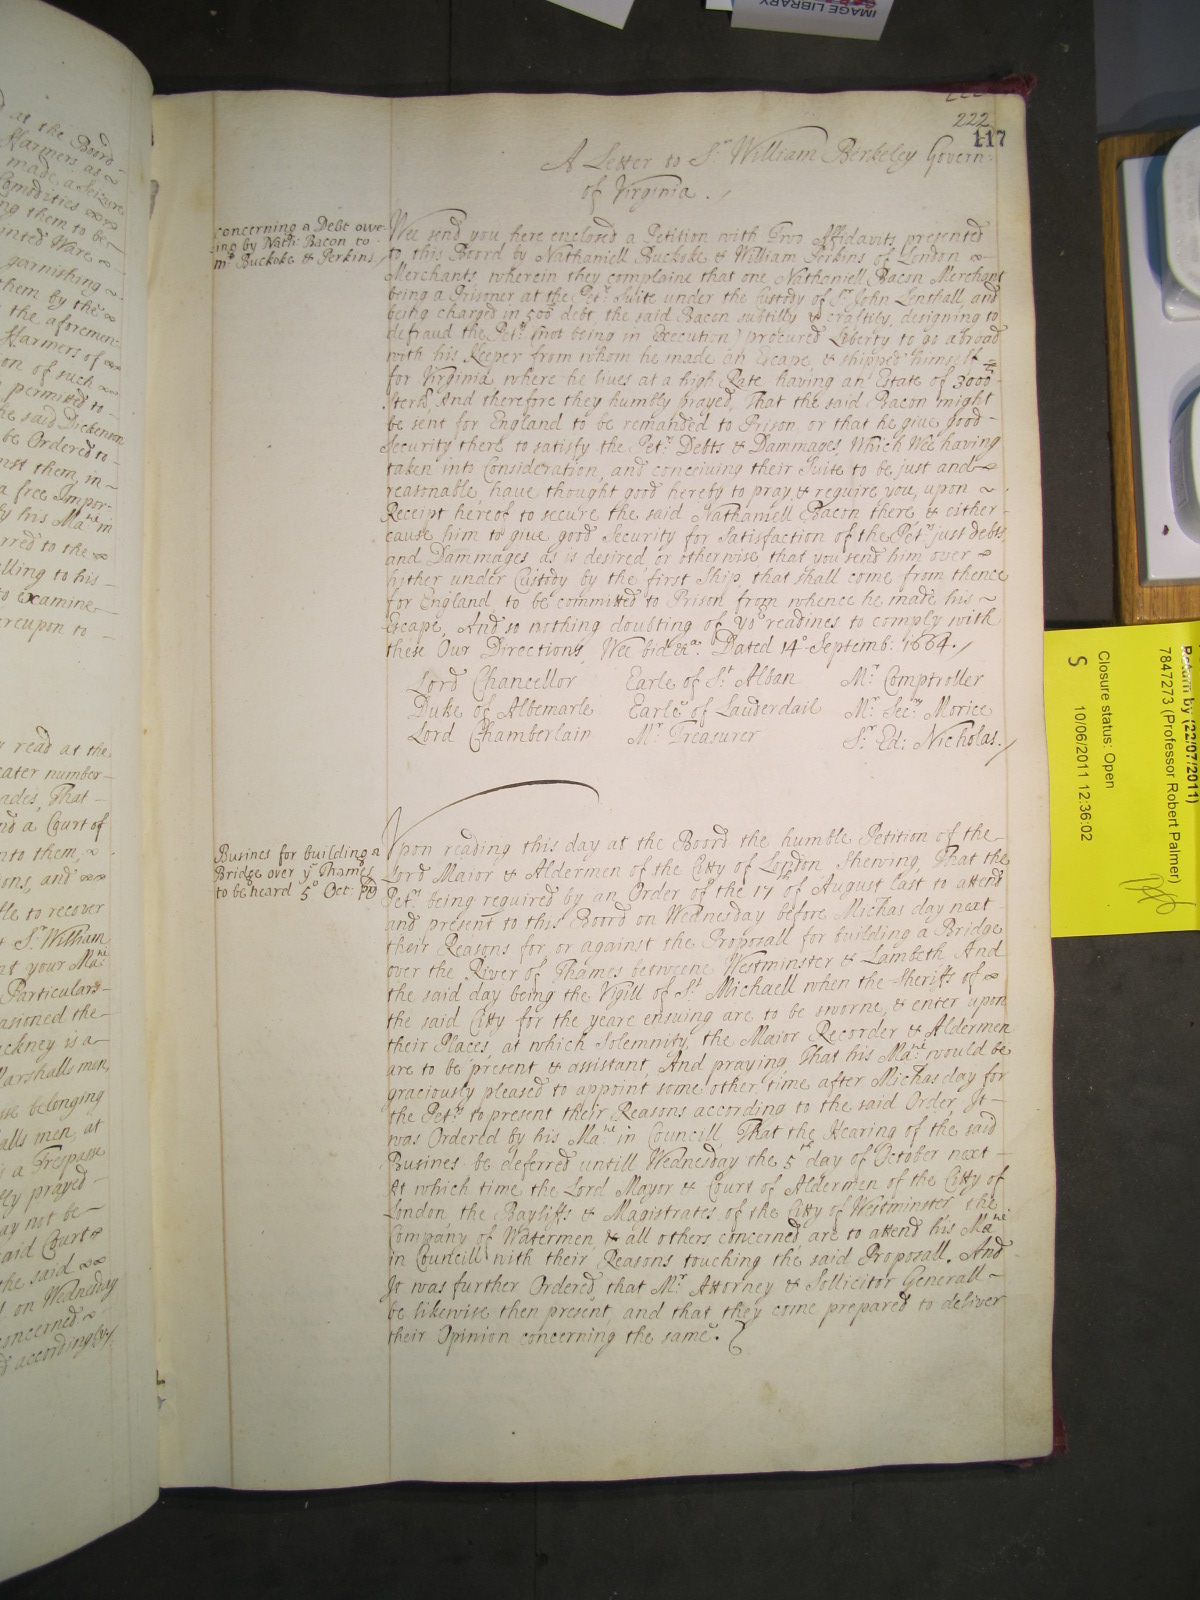 IMAGE LIBRARY
222
117
A Letter to Sr. William Berkeley Govern:
of Virginia.
concerning a Debt owe-
ing by Nath: Bacon to
mr. Buckoke & Perkins
Wee send you here enclosed a Petition with Two Affidavits presented
to this Board by Nathaniell Buckoke & William Perkins of London
Merchants, wherein they complaine that one Nathaniell Bacon Merchant
being a Prisoner at the Petrs. Suite under the Custody of Sr. John Lenthall, and
being charged in 500 debt, the said Bacon subtilly & craftily, designing to
defraud the Petrs. (not being in Execution) procured Liberty to go abroad
with his Keeper from whom he made an Escape & shipped himself
for Virginia where he lives at a high Rate having an Estate of 3000
Sterl, And therefore they humbly prayed, That the said Bacon might
be sent for England to be remanded to Prison, or that he give good
Security there to satisfy the Petrs. Debts & Dammages, Which Wee having
taken into Consideration, and conceiving their Suite to be just and
reasonable, have thought good hereby to pray & require you, upon
Receipt hereof to secure the said Nathaniell Bacon there & either
cause him to give good Security for Satisfaction of the Petrs. just debts
and Dammages as is desired or otherwise that you send him over
hither under Custody by the first Ship, that shall come from thence
for England, to be committed to Prison from whence he made his
Escape, And so nothing doubting of yor readines to comply with
these Our Directions, Wee bid &ca. Dated 14o Septemb: 1664.
Lord Chancellor Earle of St. Alban Mr. Comptroller
Duke of Albemarle Earle of Lauderdail Mr. Secry. Morice
Lord Chamberlain Mr. Treasurer Sr. Ed: Nicholas.
Busines for building a
Bridge over ye Thames
to be heard 5o Oct:
Upon reading this day at the Board the humble Petition of the
Lord Maior & Aldermen of the Citty of London, Shewing, That the
Petrs. being required by an Order of the 17th of August last to attend
and present to this Board on Wednesday before Michas day next
their Reasons for, or against the Proposall for building a Bridge
over the River of Thames betweene Westminster & Lambeth, And
the said day being the Vigill of St. Michaell when the Sheriffs of
the said Citty for the yeare ensuing are to be sworne, & enter upon
their Places, at which Solemnity, the Maior Recorder & Aldermen
are to be present & assistant, And praying That his Matie. would be
graciously pleased to appoint some other time after Michas day for
the Petrs. to present their Reasons according to the said Order, It
was Ordered by his Matie in Councill, That the Hearing of the said
Busines be deferred untill Wednesday the 5th day of October next
At which time the Lord Mayor & Court of Aldermen of the Citty of
London the Bayliffs & Magistrates of the Citty of Westminster the
Company of Watermen, & all others concerned, are to attend his Matie
in Councill with their Reasons touching the said Proposall. And
It was further Ordered, that Mr. Attorney & Sollicitor Generall
be likewise then present, and that they come prepared to deliver
their Opinion concerning the same.
Return by (22/07/2011)
7847273 (Professor Robert Palmer)
Closure status: Open
S 10/06/2011 12:36:02
at the Board
Farmers as
made a Seizure
Comodities
ng them to be
garnishing
them by the
the aforemen-
Farmers of
on of such
permitted to
he said Dickenson
be Ordered to
nst them, in
a free Impor-
by his Matie in
rred to the
lling to his
to examine
ereupon to
read at the
eater number
ades, That
nd a Court of
nto them,
ons, and
le to recover
Sr. William
at your Matie
Particulars
asioned the
ckney is a
Marshalls men,
se belonging
alls men, at
a Trespasse
ly prayed
ay not be
said Court
the said
on Wednesday
concerned
accordingly